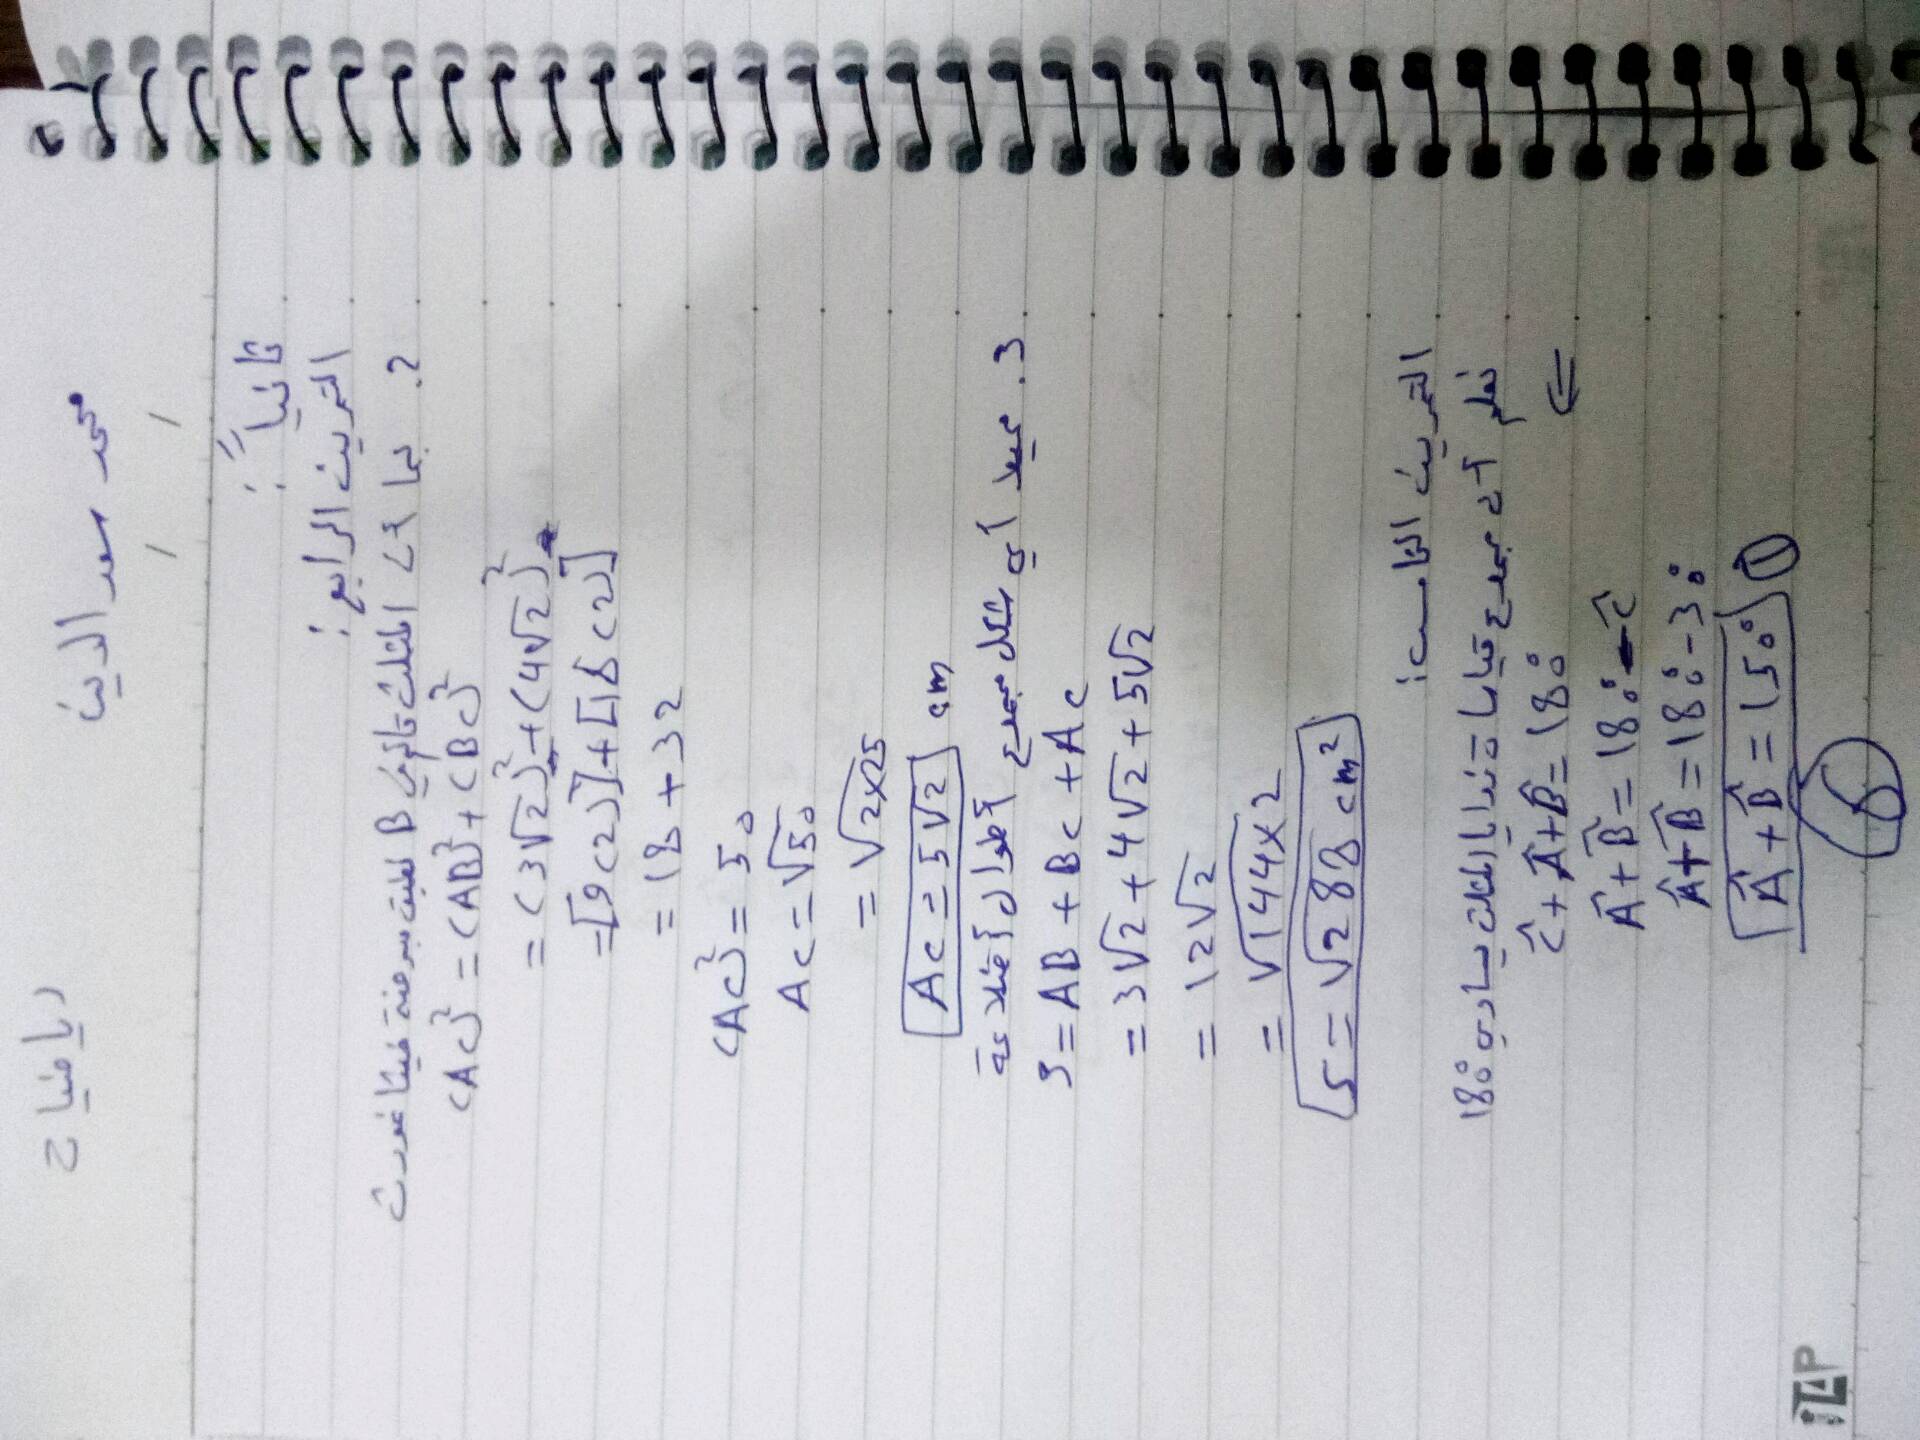 محمد سعد الدين رياضيات
ثانياً:
التمرين الرابع:
2. بما أن المثلث قائم في B نطبق مبرهنة فيثاغورث
(AC)² = (AB)² + (BC)²
= (3√2)² + (4√2)²
= [9(2)] + [16(2)]
= 18 + 32
(AC)² = 50
AC = √50
= √2×25
AC = 5√2 cm
3. محيط أي شكل مجموع أطوال أضلاعه
S = AB + BC + AC
= 3√2 + 4√2 + 5√2
= 12√2
= √144×2
S = √288 cm²
التمرين الخامس:
نعلم أن مجموع قياسات زوايا المثلث يساوي 180°
⇐
Ĉ + Â + B̂ = 180
Â + B̂ = 180 - Ĉ
Â + B̂ = 180 - 30
Â + B̂ = 150° ①
iTAP